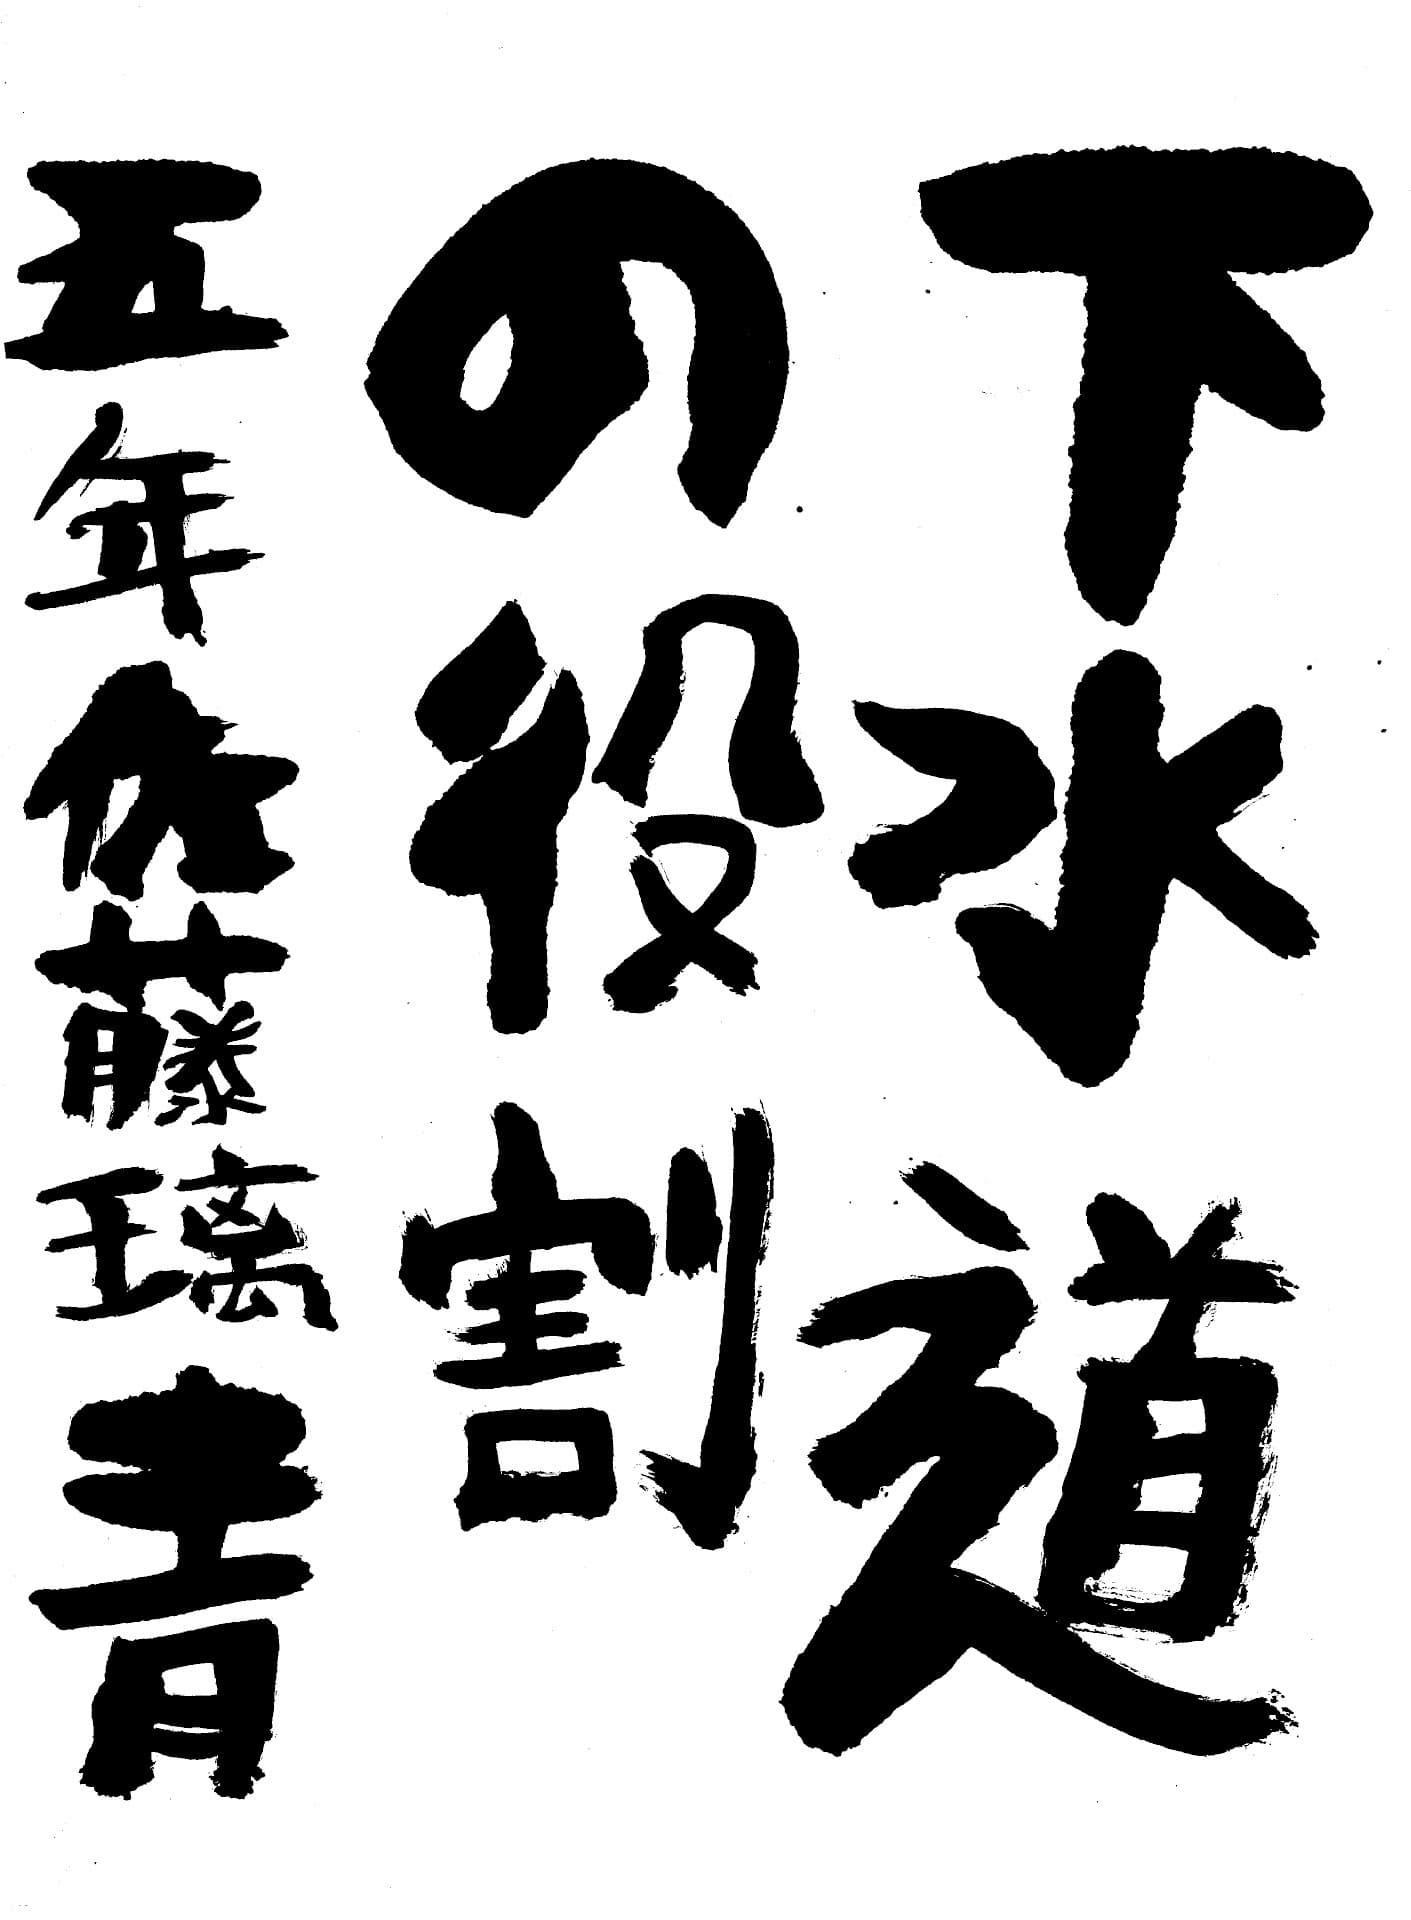 下水道
の役割
五年佐藤璃青